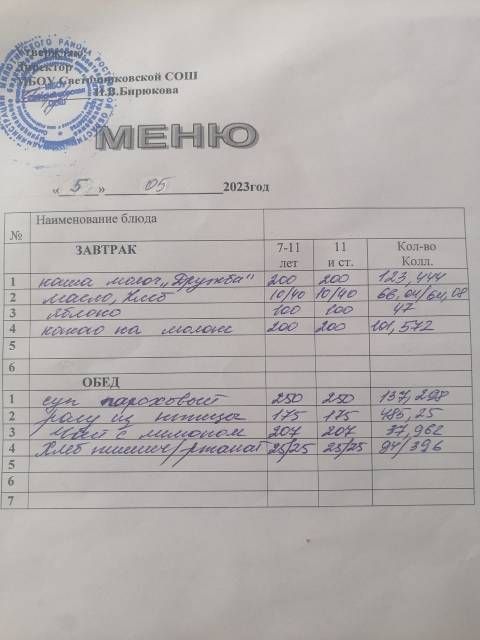 Утверждаю
Директор
МБОУ Светочниковской СОШ
И.В.Бирюкова
МЕНЮ
« 5 » 05 2023год
№ Наименование блюда
ЗАВТРАК 7-11 лет 11 и ст. Кол-во Колл.
1 каша молоч. "Дружба" 200 200 123,444
2 масло, хлеб 10/40 10/40 66,04/64,08
3 яблоко 100 100 47
4 какао на молоке 200 200 101,572
5
6
ОБЕД
1 суп гороховый 250 250 137,298
2 рагу из птицы 175 175 485,25
3 Чай с лимоном 207 207 37,962
4 Хлеб пшенич/ржаной 25/25 25/25 94/396
5
6
7